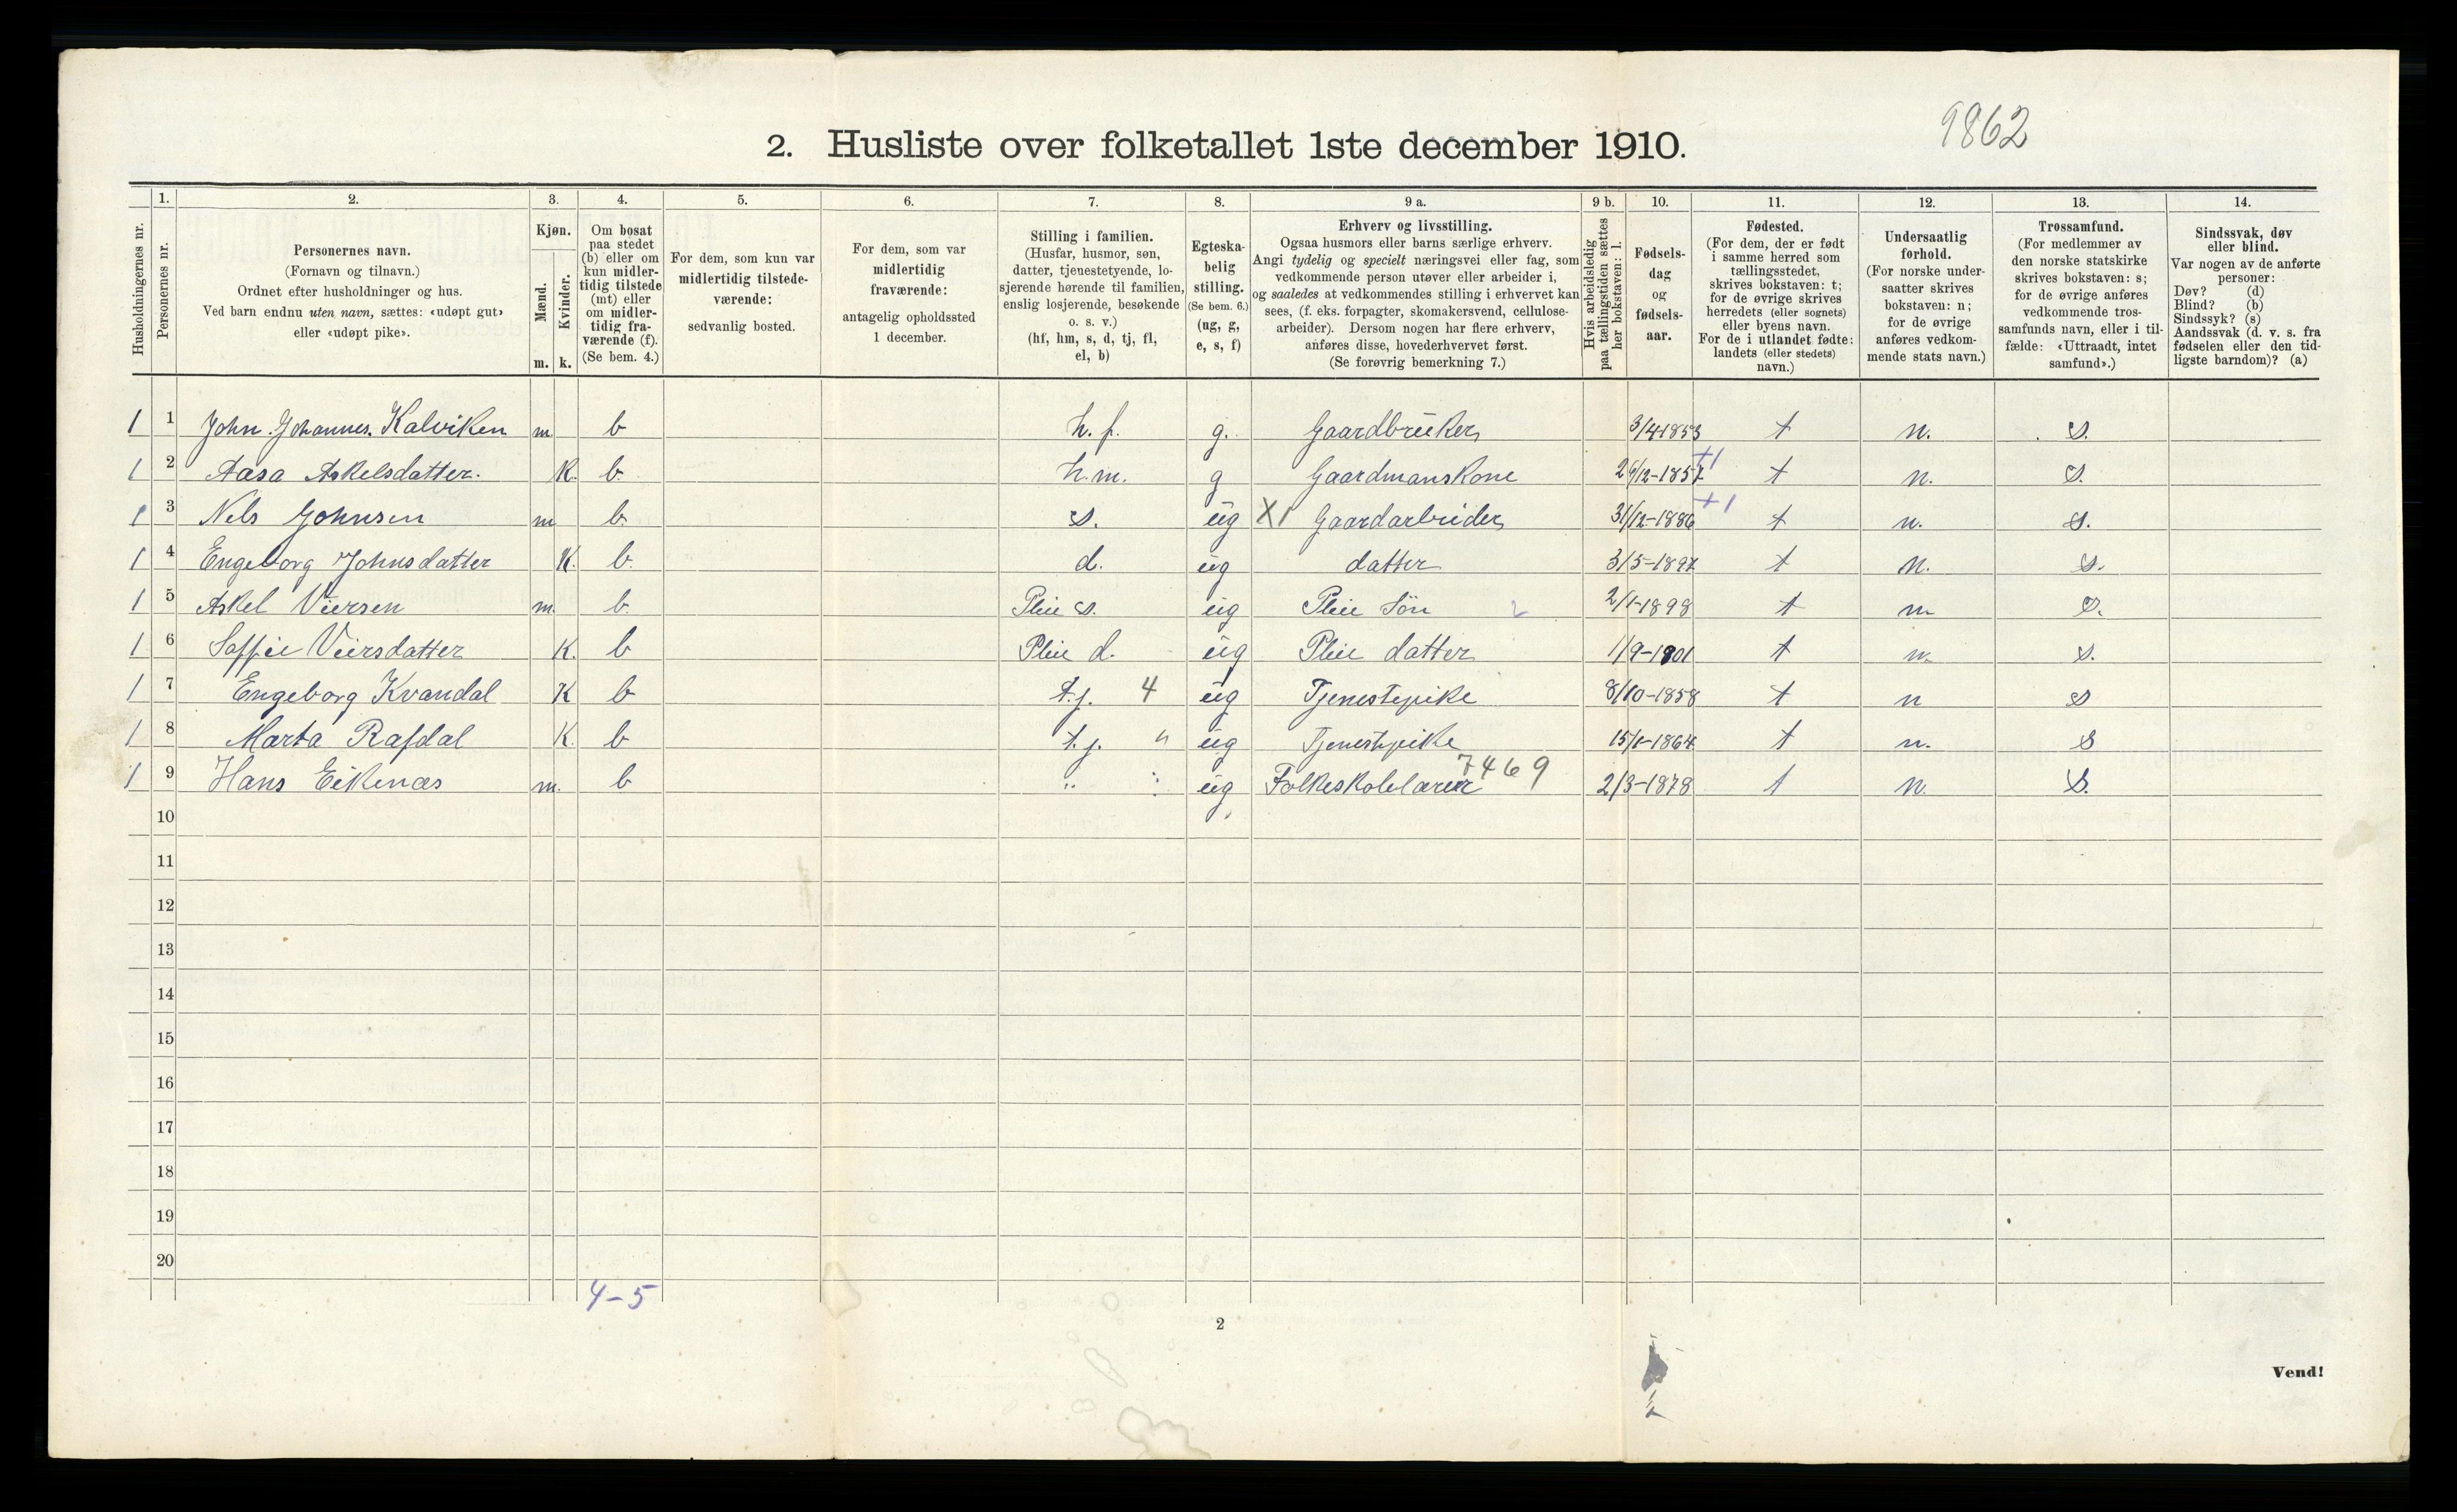 9862
2. Husliste over folketallet 1ste december 1910.
Husholdningernes nr.
1.
Personernes nr.
2.
Personernes navn.
(Fornavn og tilnavn.)
Ordnet efter husholdninger og hus.
Ved barn endnu uten navn, sættes: «udøpt gut»
eller «udøpt pike».
3.
Kjøn.
Mænd.
m.
Kvinder.
k.
4.
Om bosat
paa stedet
(b) eller om
kun midler-
tidig tilstede
(mt) eller
om midler-
tidig fra-
værende (f).
(Se bem. 4.)
5.
For dem, som kun var
midlertidig tilstede-
værende:
sedvanlig bosted.
6.
For dem, som var
midlertidig
fraværende:
antagelig opholdssted
1 december.
7.
Stilling i familien.
(Husfar, husmor, søn,
datter, tjenestetyende, lo-
sjerende hørende til familien,
enslig losjerende, besøkende
o. s. v.)
(hf, hm, s, d, tj, fl,
el, b)
8.
Egteska-
belig
stilling.
(Se bem. 6.)
(ug, g,
e, s, f)
9 a.
Erhverv og livsstilling.
Ogsaa husmors eller barns særlige erhverv.
Angi tydelig og specielt næringsvei eller fag, som
vedkommende person utøver eller arbeider i,
og saaledes at vedkommendes stilling i erhvervet kan
sees, (f. eks. forpagter, skomakersvend, cellulose-
arbeider). Dersom nogen har flere erhverv,
anføres disse, hovederhvervet først.
(Se forøvrig bemerkning 7.)
9 b.
Hvis arbeidsledig
paa tællingstiden sættes
her bokstaven: l.
10.
Fødsels-
dag
og
fødsels-
aar.
11.
Fødested.
(For dem, der er født
i samme herred som
tællingsstedet,
skrives bokstaven: t;
for de øvrige skrives
herredets (eller sognets)
eller byens navn.
For de i utlandet fødte:
landets (eller stedets)
navn.)
12.
Undersaatlig
forhold.
(For norske under-
saatter skrives
bokstaven: n;
for de øvrige
anføres vedkom-
mende stats navn.)
13.
Trossamfund.
(For medlemmer av
den norske statskirke
skrives bokstaven: s;
for de øvrige anføres
vedkommende tros-
samfunds navn, eller i til-
fælde: «Uttraadt, intet
samfund».)
14.
Sindssvak, døv
eller blind.
Var nogen av de anførte
personer:
Døv? (d)
Blind? (b)
Sindssyk? (s)
Aandssvak (d. v. s. fra
fødselen eller den tid-
ligste barndom)? (a)
1 1 John. Johannes. Kalviken m. b h. f. g. Gaardbrüker 3/4-1853 t n. s.
1 2 Aasa Askelsdatter. K. b. h.m. g Gaardmanskone t n. s.
1 3 Nels Johnsen m b. s. üg X1 Gaardarbeider 31/12-1886 +1 t n. s.
1 4 Engeborg Johnsdatter K. b. d. üg datter t n. s.
1 5 Askel Viersen m. b. Pleie s. üg Pleie Sön 2 2/1-1898 t n s.
1 6 Saffie Viersdatter K. b Pleie d. üg Pleie datter 1/9-1901 t n. s.
1 7 Engeborg Kvandal K b t.j. 4 üg Tjenestepike 8/10-1858 t n s
1 8 Marta Rafdal K. b t.j. " üg Tjenestepike t n. s
1 9 Hans Eikenæs m. b " : üg Folkeskolelærer 7469 2/3-1878 t n. s.
10
11
12
13
14
15
16
17
18
19
20
4-5
2
Vend!